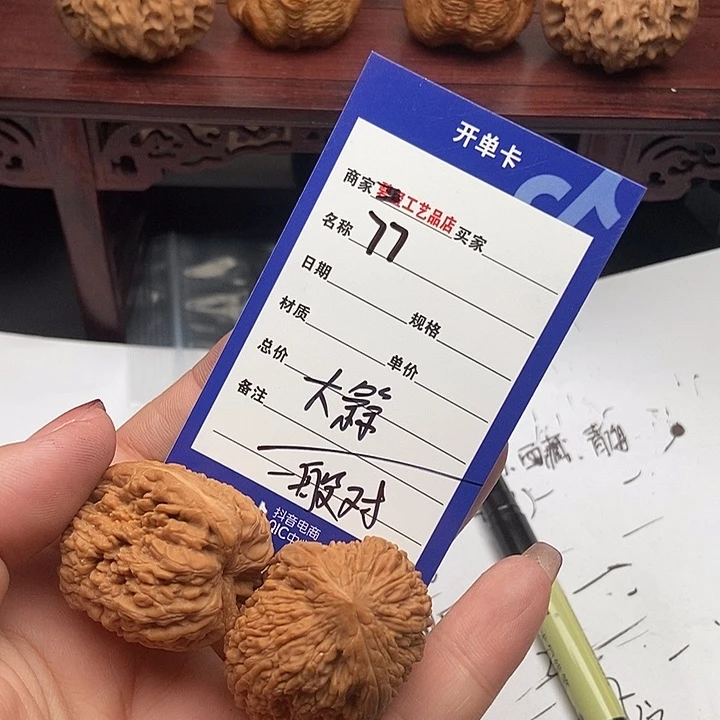 开单卡
商家 工艺品店 买家
名称 77
日期
材质 规格
总价 单价
备注 大
一般对
抖音电商
QIC中
西藏、青海